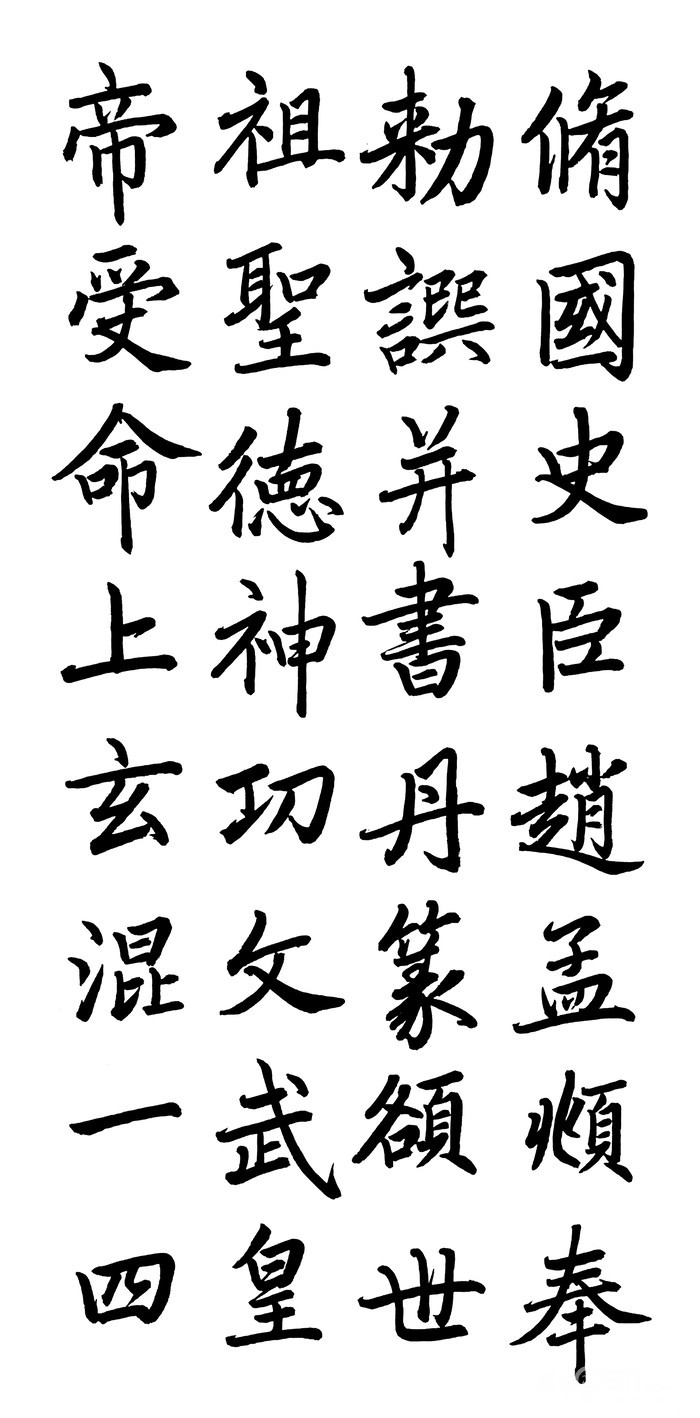 脩國史臣趙孟頫奉
勑譔并書丹篆額世
祖聖德神功文武皇
帝受命上玄混一四